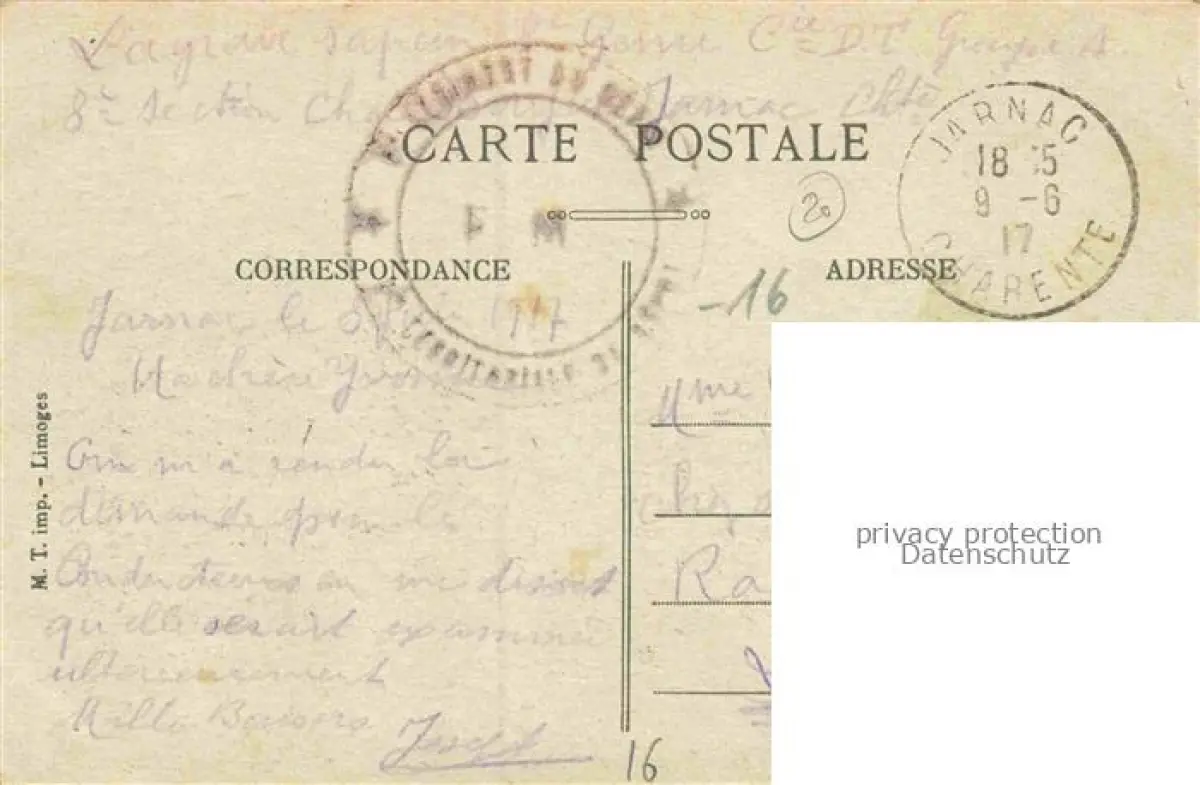 Lagrave sapeur Génie Cie D.T. Groupe A.
8e Section Jarnac Chte
CARTE POSTALE
F M
JARNAC
18 15
9 - 6
17
CHARENTE
20
CORRESPONDANCE
ADRESSE
-16
Jarnac le 8 1917
Ma chère Yvonne
On m'a rendu la
demande
Conducteurs en me disant
qu'elle serait examinée
ultérieurement
Mille Baisers
Joseph
Mme
chez
Ra
M. T. imp. - Limoges
16
privacy protection
Datenschutz